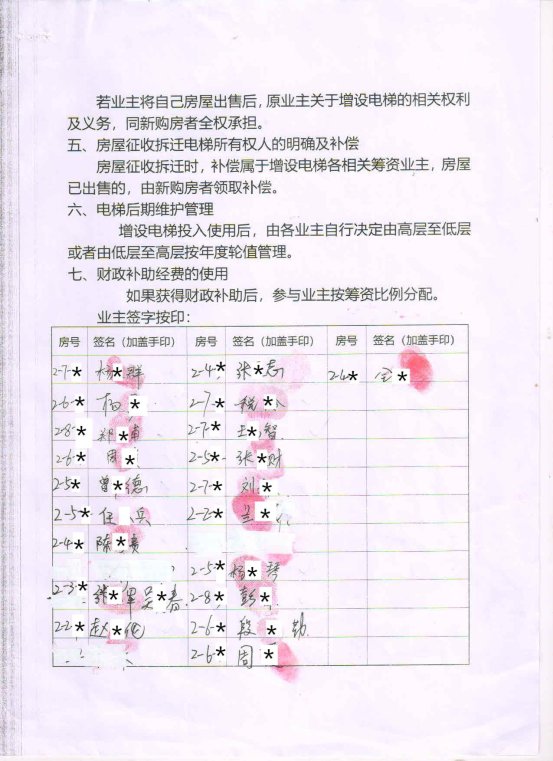 若业主将自己房屋出售后，原业主关于增设电梯的相关权利
及义务，同新购房者全权承担。
五、房屋征收拆迁电梯所有权人的明确及补偿
房屋征收拆迁时，补偿属于增设电梯各相关筹资业主，房屋
已出售的，由新购房者领取补偿。
六、电梯后期维护管理
增设电梯投入使用后，由各业主自行决定由高层至低层
或者由低层至高层按年度轮值管理。
七、财政补助经费的使用
如果获得财政补助后，参与业主按筹资比例分配。
业主签字按印：
房号 签名（加盖手印） 房号 签名（加盖手印） 房号 签名（加盖手印）
2-7-* 杨*群 2-4-* 张*志 2-4-* *
2-6-* 杨* 2-7-* *
2-8-* 郑* 2-7-* 王*智
2-6-* 周* 2-5-* 张*财
2-5-* 曾*德 2-7-* 刘*
2-5-* 任 兵 2-2-* 兰*
2-4-* 陈*
2-5-* 杨*琴
2-3-* 张*军 吴*春 2-8-* 彭*
2-2-* 赵* 2-6-* 段*
2-6-* 周*